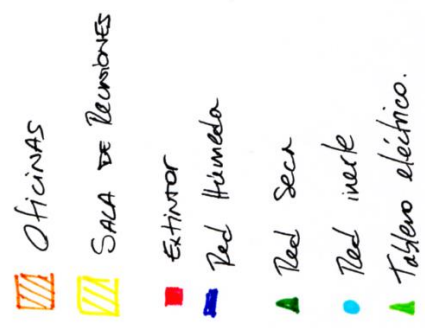 Oficinas
SALA DE Reuniones
Extintor
Red Húmeda
Red Seca
Red inerte
Tablero eléctrico.